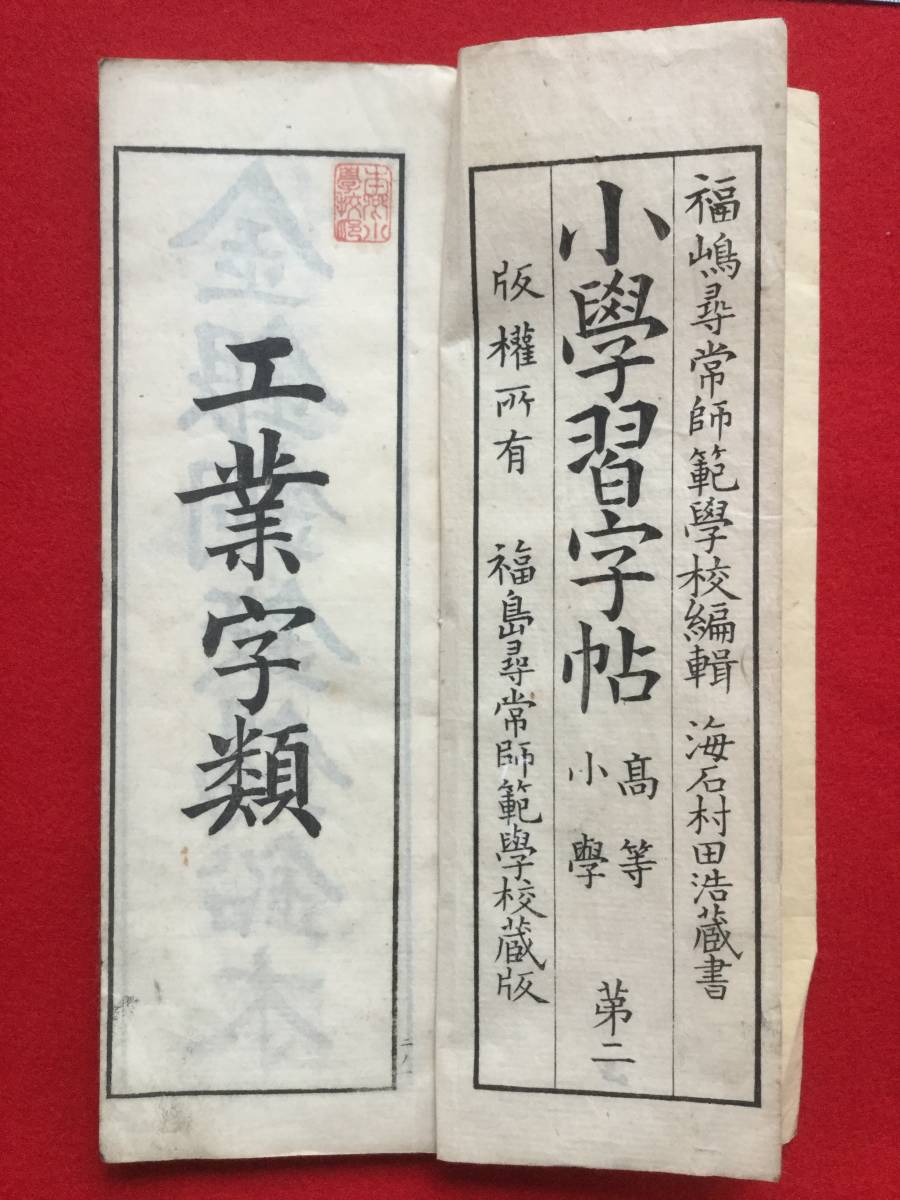 福嶋尋常師範學校編輯 海石村田浩蔵書
小學習字帖 高等
小學
第二
版權所有 福島尋常師範學校蔵版
工業字類